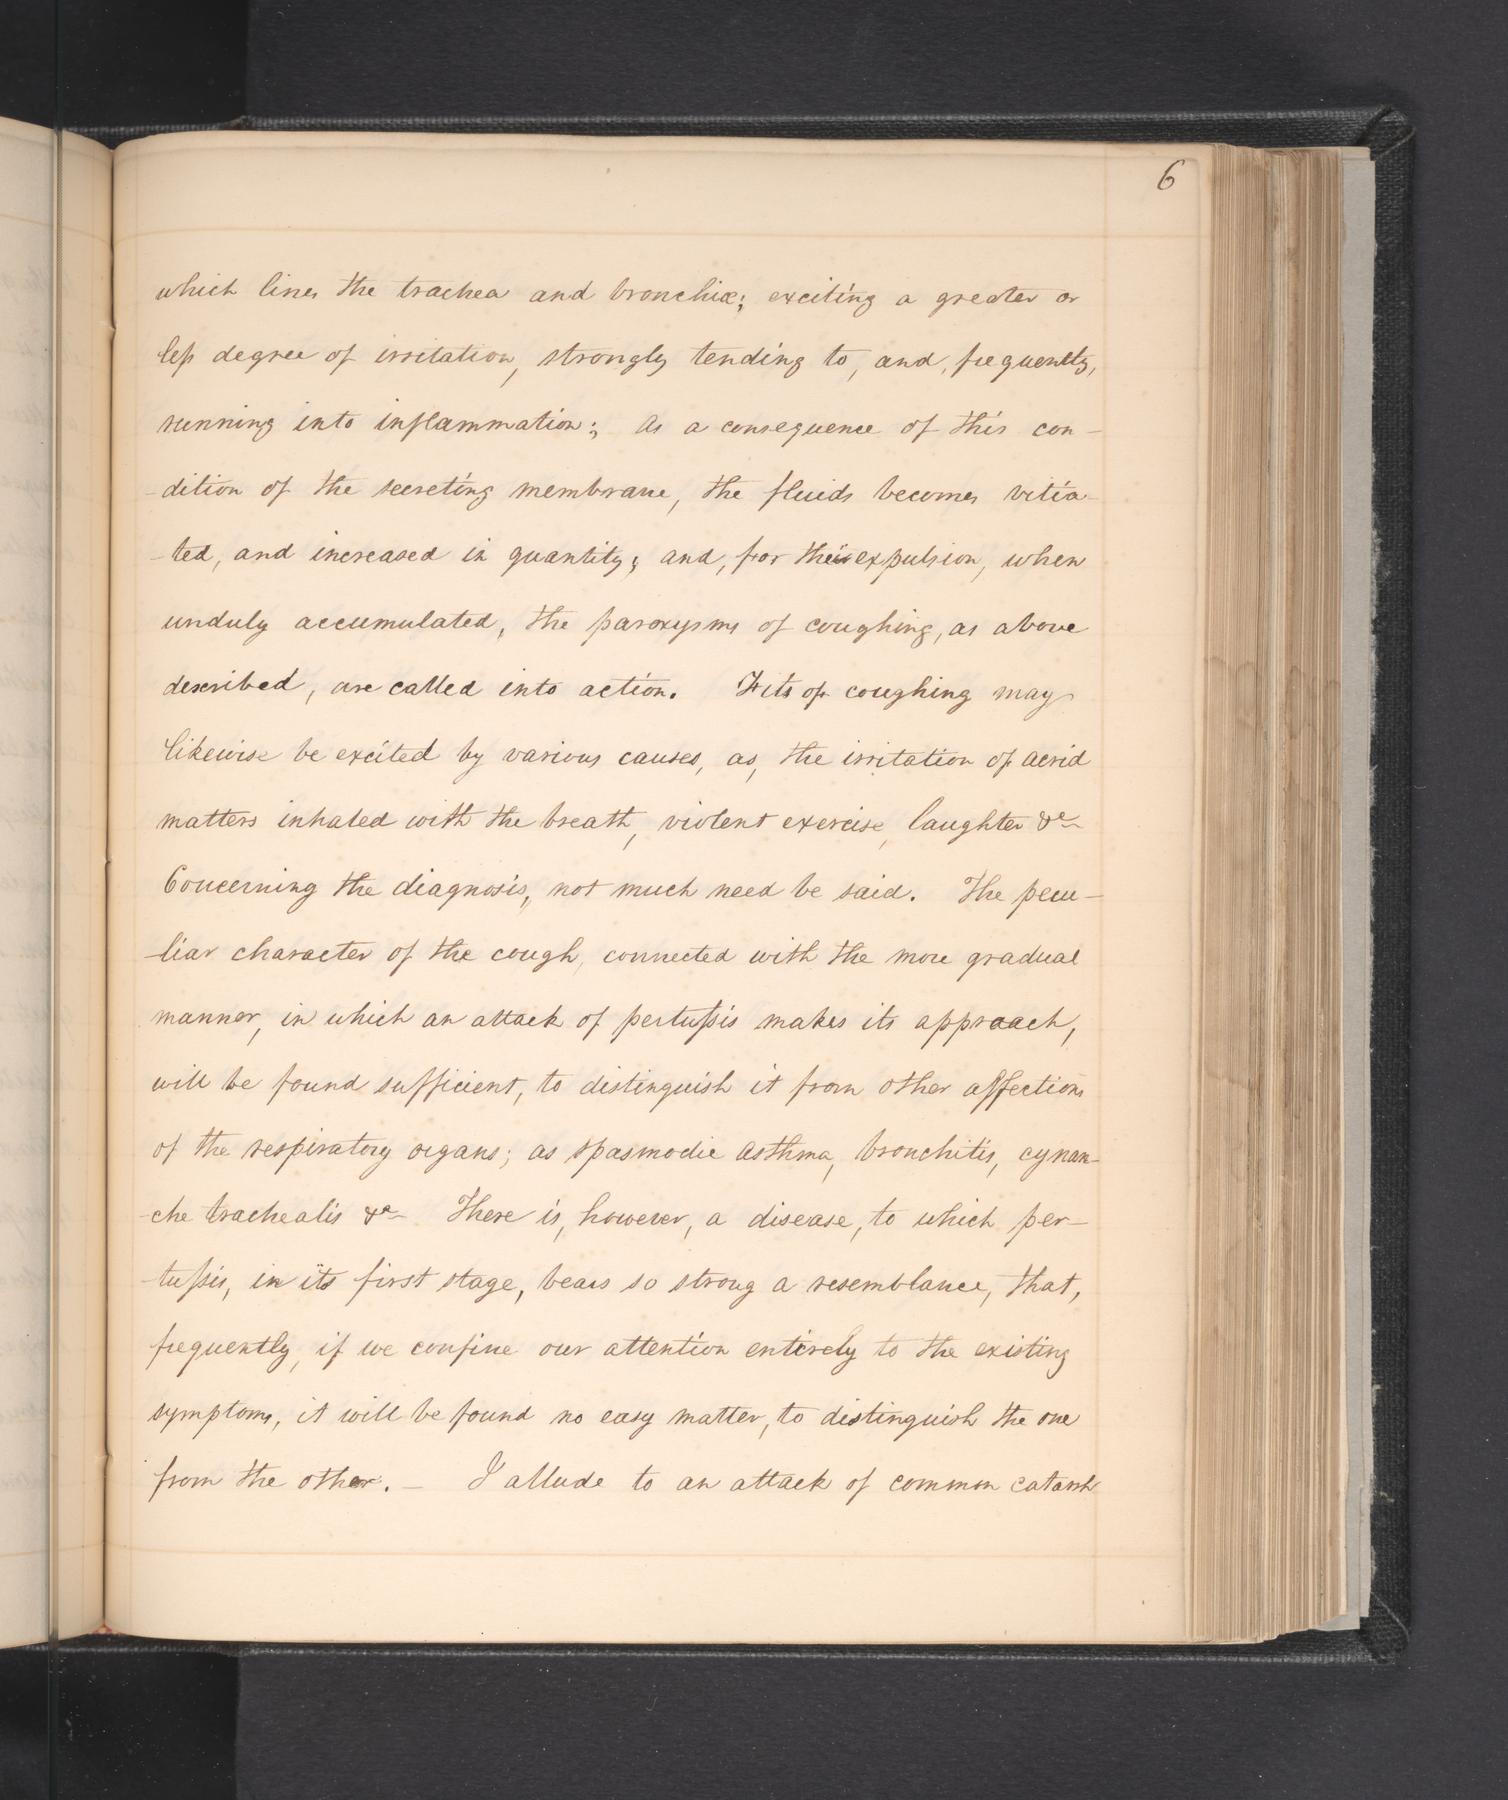 6
which lines the trachea and bronchiæ; exciting a greater or
less degree of irritation, strongly tending to, and, frequently,
running into inflammation; As a consequence of this con-
-dition of the secreting membrane, the fluids becomes vitia-
-ted, and increased in quantity; and, for their expulsion, when
unduly accumulated, the paroxysms of coughing, as above
described, are called into action. Fits of coughing may
likewise be excited by various causes, as, the irritation of acrid
matters inhaled with the breath, violent exercise, laughter &c
Concerning the diagnosis, not much need be said. The pecu-
-liar character of the cough, connected with the more gradual
manner, in which an attack of pertussis makes its appraach,
will be found sufficient, to distinguish it from other affections
of the respiratory organs; as spasmodic asthma, bronchitis, cynan-
-che trachealis &c There is, however, a disease, to which per-
-tussis, in its first stage, bears so strong a resemblance, that,
frequently, if we confine our attention entirely to the existing
symptoms, it will be found no easy matter, to distinguish the one
from the other. - I allude to an attack of common catarrh